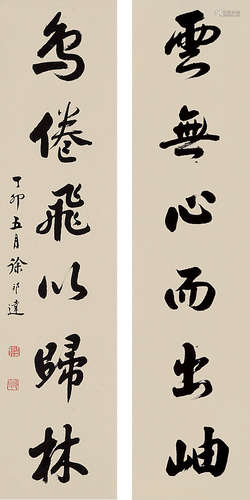 雲無心而出岫
鳥倦飛以歸林
丁卯五月徐邦達